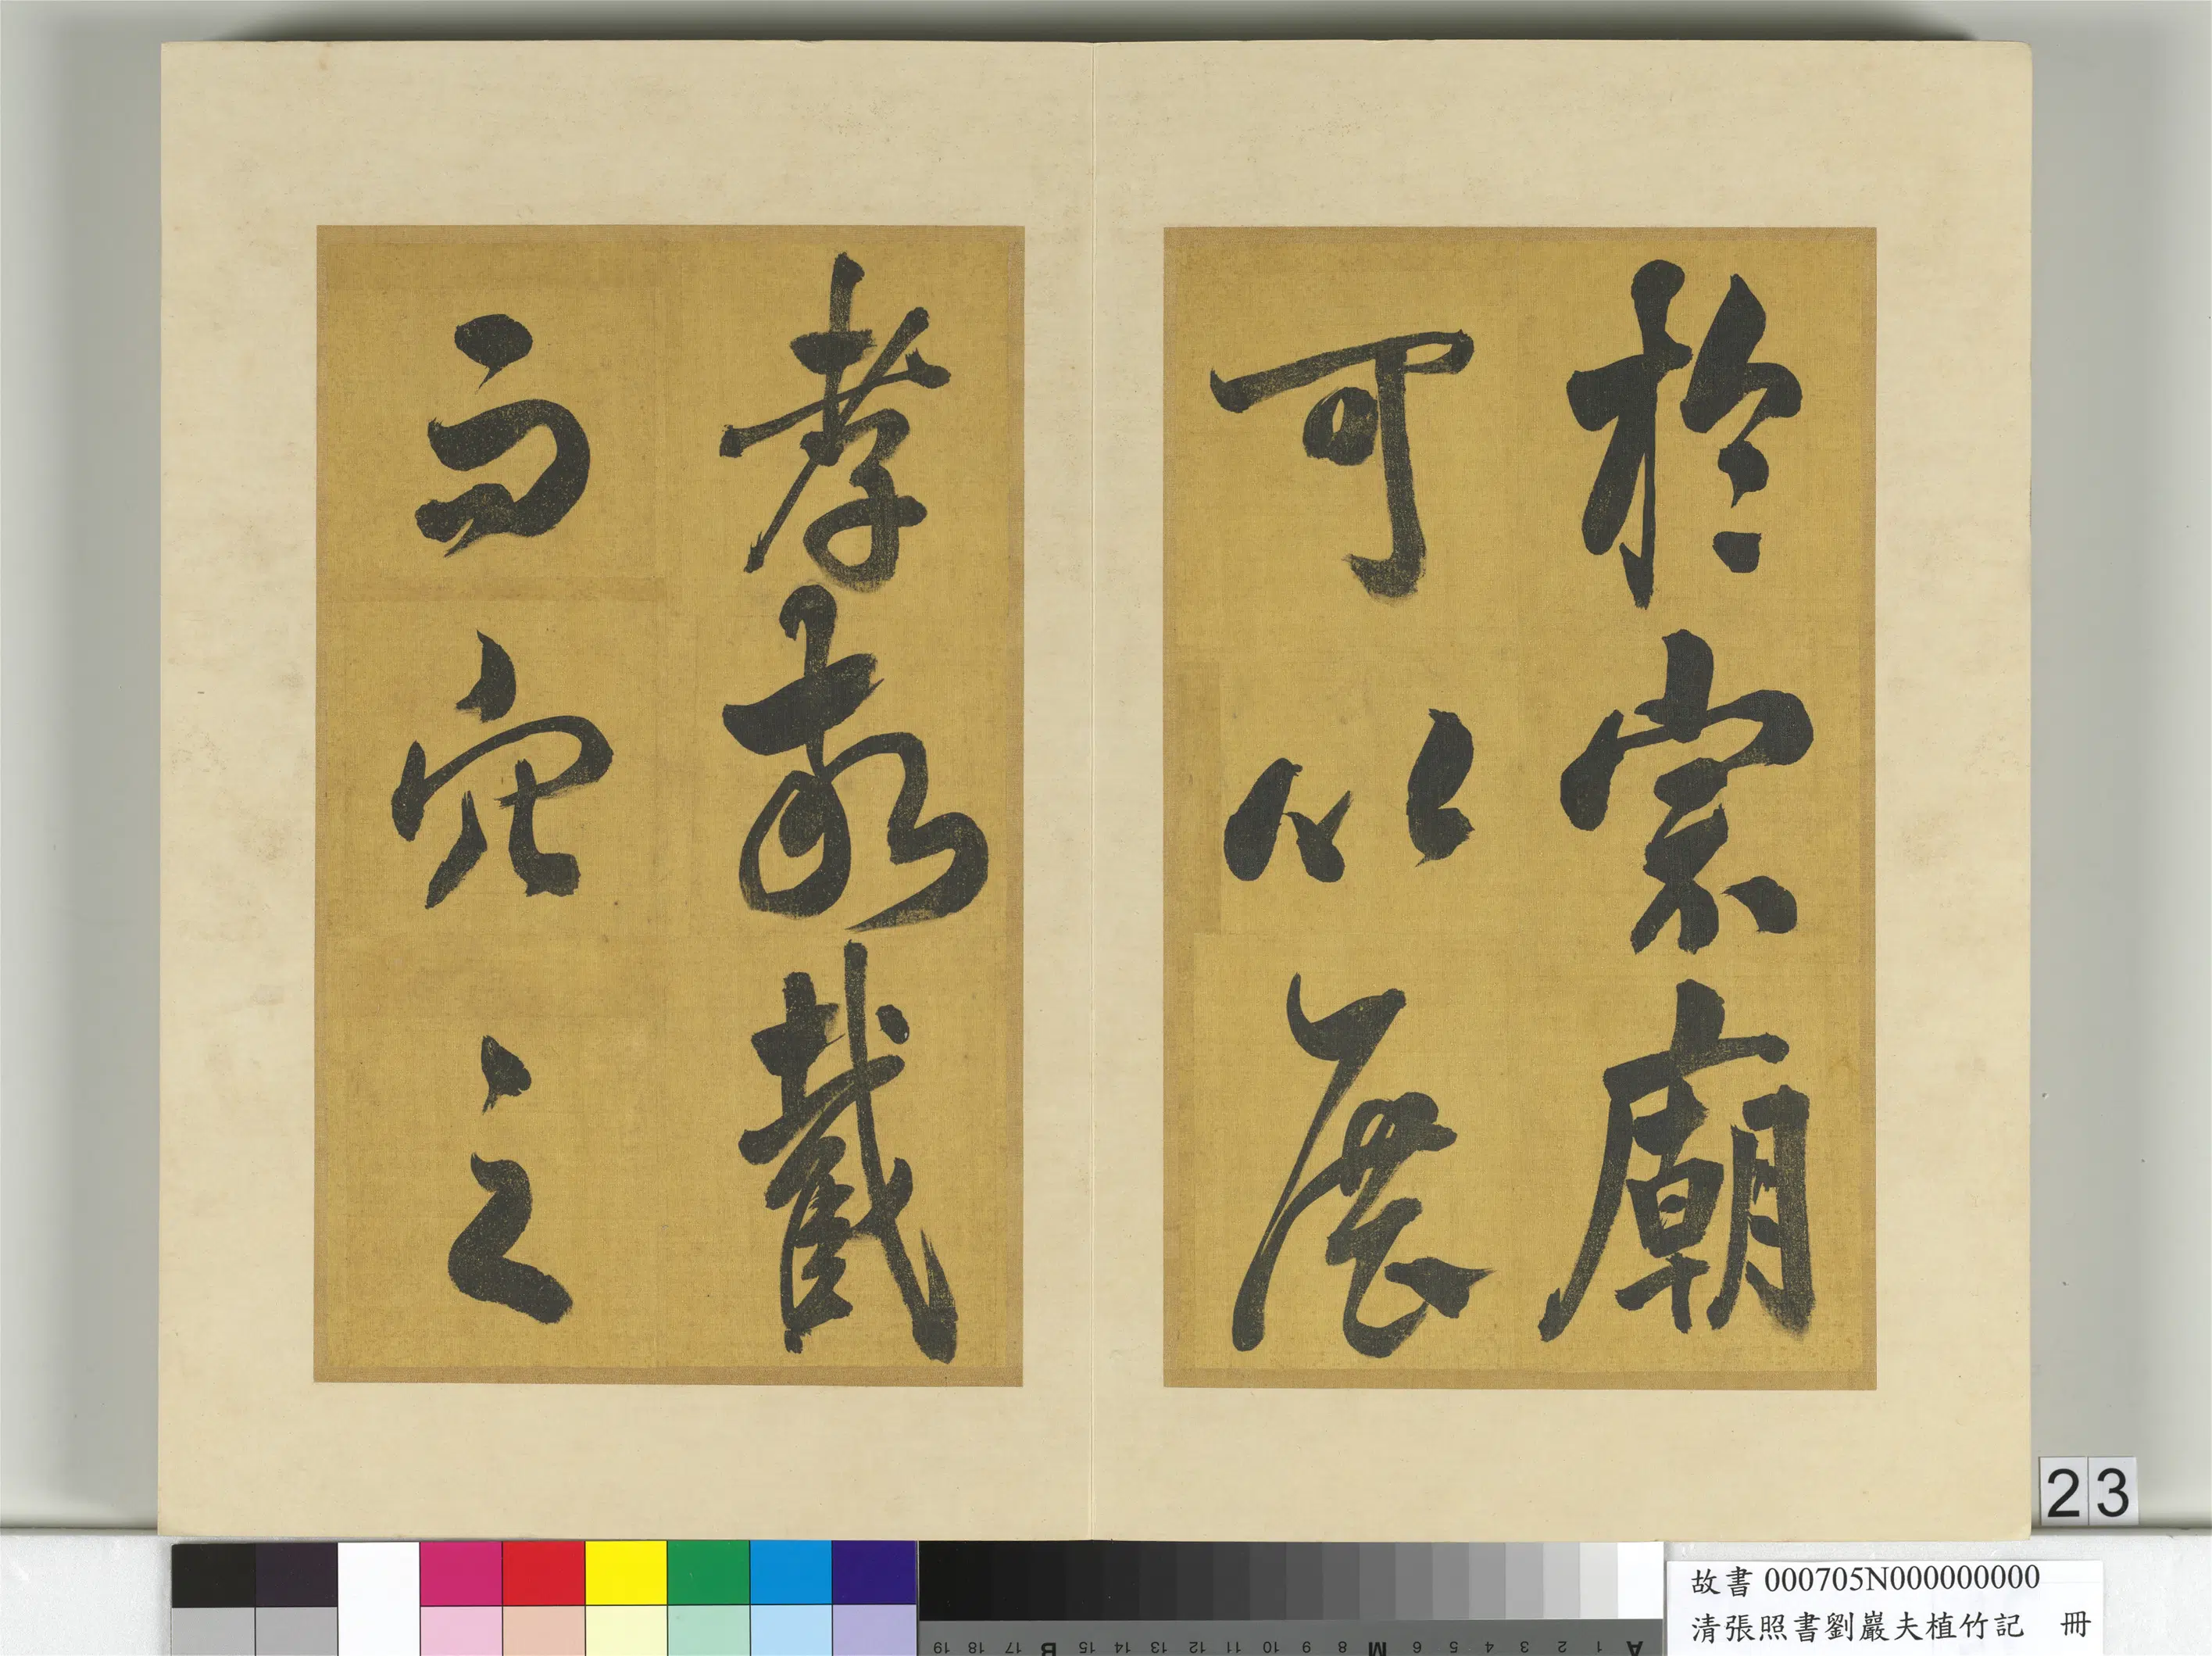 於宗廟
可以展
孝敬截
而穴之
23
故書 000705N000000000
清張照書劉巖夫植竹記 冊
A 1 2 3 4 5 6 M 8 9 10 11 12 13 14 15 B 17 18 19